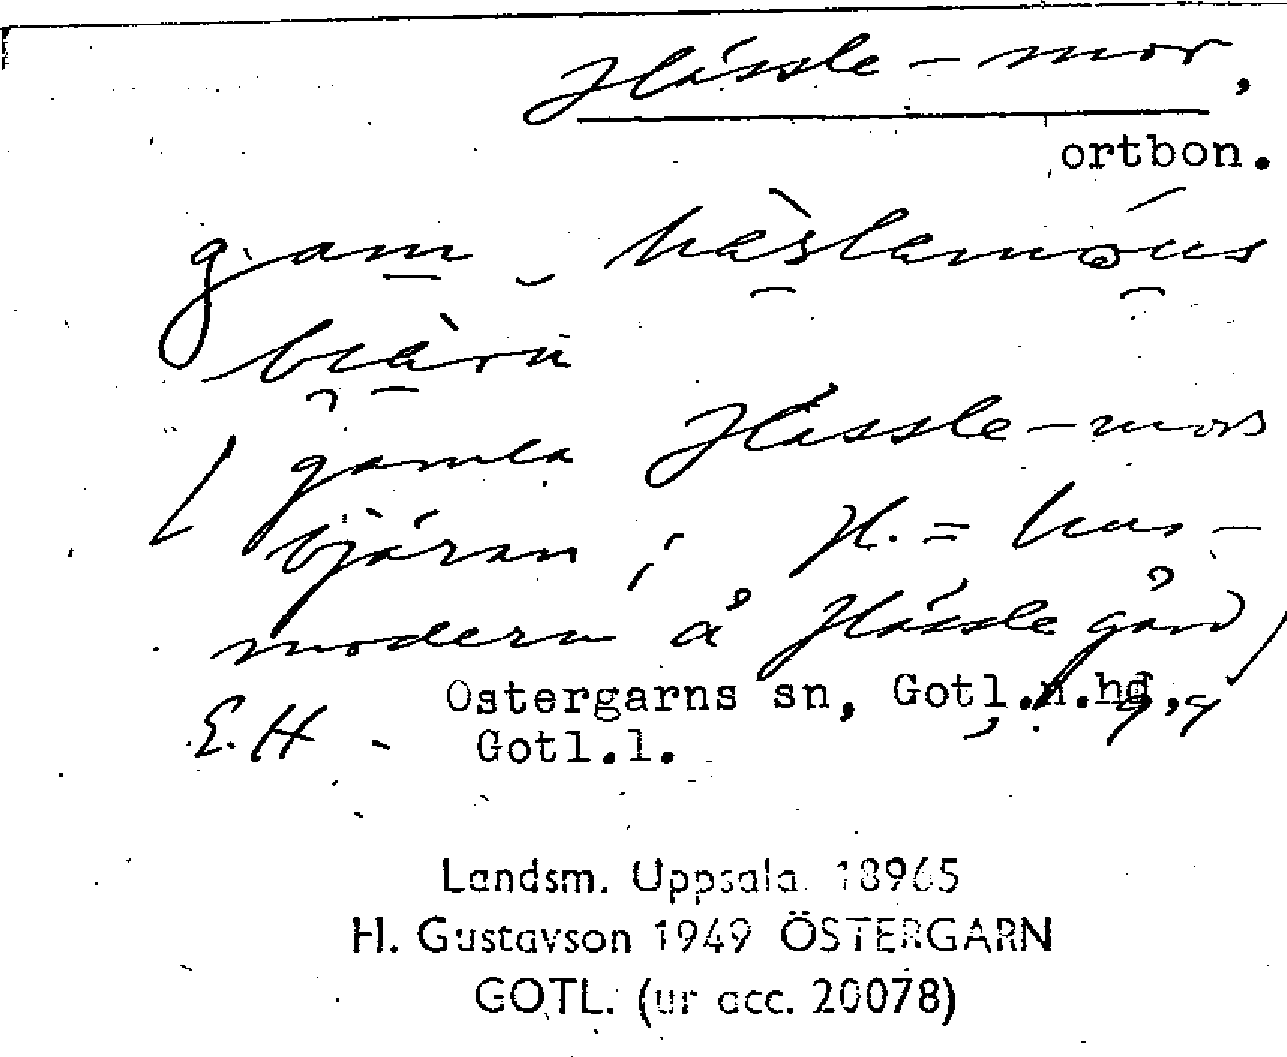 Hässle-mor,
ortbon.
gam hàslamóus
biàrn
/ gamla Hässle-mors
bjäran; H. = hus-
modern å Hässle gård,
E.H - Ostergarns sn, Gotl.n.hd,
Gotl.l.
Landsm. Uppsala 18965
H. Gustavson 1949 ÖSTERGARN
GOTL. (ur acc. 20078)